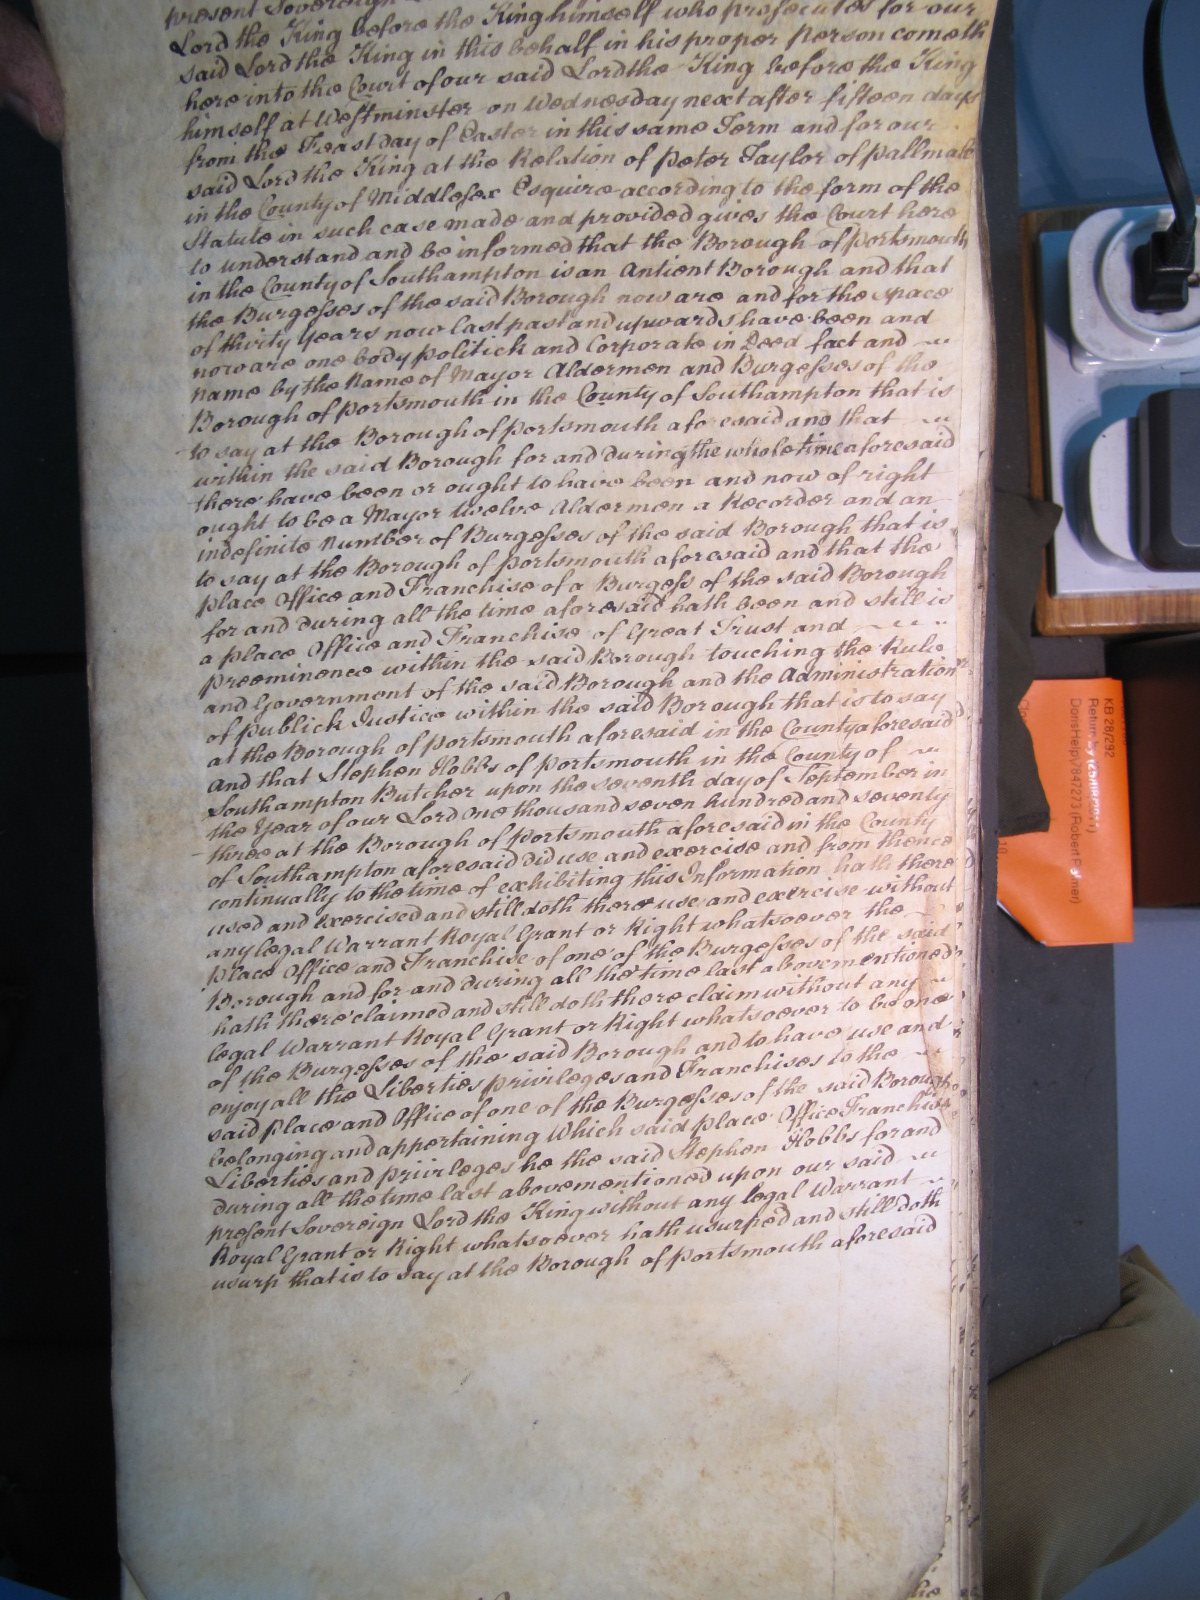 present Sovereign
Lord the King before the King himself who prosecutes for our
said Lord the King in this behalf in his proper Person cometh
here into the Court of our said Lord the King before the King
himself at Westminster on Wednesday next after fifteen days
from the Feast day of Easter in this same Term and for our
said Lord the King at the Relation of Peter Taylor of Pallmall
in the County of Middlesex Esquire according to the form of the
Statute in such case made and provided gives the Court here
to understand and be informed that the Borough of Portsmouth
in the County of Southampton is an Antient Borough and that
the Burgesses of the said Borough now are and for the space
of thirty Years now last past and upwards have been and
now are one body Politick and Corporate in Deed fact and
Name by the Name of Mayor Aldermen and Burgesses of the
Borough of Portsmouth in the County of Southampton that is
to say at the Borough of Portsmouth aforesaid and that
within the said Borough for and during the whole time aforesaid
there have been or ought to have been and now of right
ought to be a Mayor twelve Aldermen a Recorder and an
indefinite Number of Burgesses of the said Borough that is
to say at the Borough of Portsmouth aforesaid and that the
place Office and Franchise of a Burgess of the said Borough
for and during all the time aforesaid hath been and still is
a place Office and Franchise of Great Trust and
Preeminence within the said Borough touching the Rule
and Government of the said Borough and the Administration
of Publick Justice within the said Borough that is to say
at the Borough of Portsmouth aforesaid in the County aforesaid
And that Stephen Hobbs of Portsmouth in the County of
Southampton Butcher upon the seventh day of September in
the Year of our Lord One thousand seven hundred and seventy
three at the Borough of Portsmouth aforesaid in the County
of Southampton aforesaid did use and exercise and from thence
continually to the time of exhibiting this Information hath there
used and exercised and still doth there use and exercise without
any legal Warrant Royal Grant or Right whatsoever the
Place Office and Franchise of one of the Burgesses of the said
Borough and for and during all the time last abovementioned
hath there claimed and still doth there claim without any
legal Warrant Royal Grant or Right whatsoever to be one
of the Burgesses of the said Borough and to have use and
enjoy all the Liberties Privileges and Franchises to the
said Place and Office of one of the Burgesses of the said Borough
belonging and appertaining Which said Place Office Franchise
Liberties and Privileges he the said Stephen Hobbs for and
during all the time last abovementioned upon our said
present Sovereign Lord the King without any legal Warrant
Royal Grant or Right whatsoever hath usurped and still doth
usurp that is to say at the Borough of Portsmouth aforesaid
KB 28/292
Return by
DorisHelp\7847273 (Robert Palmer)